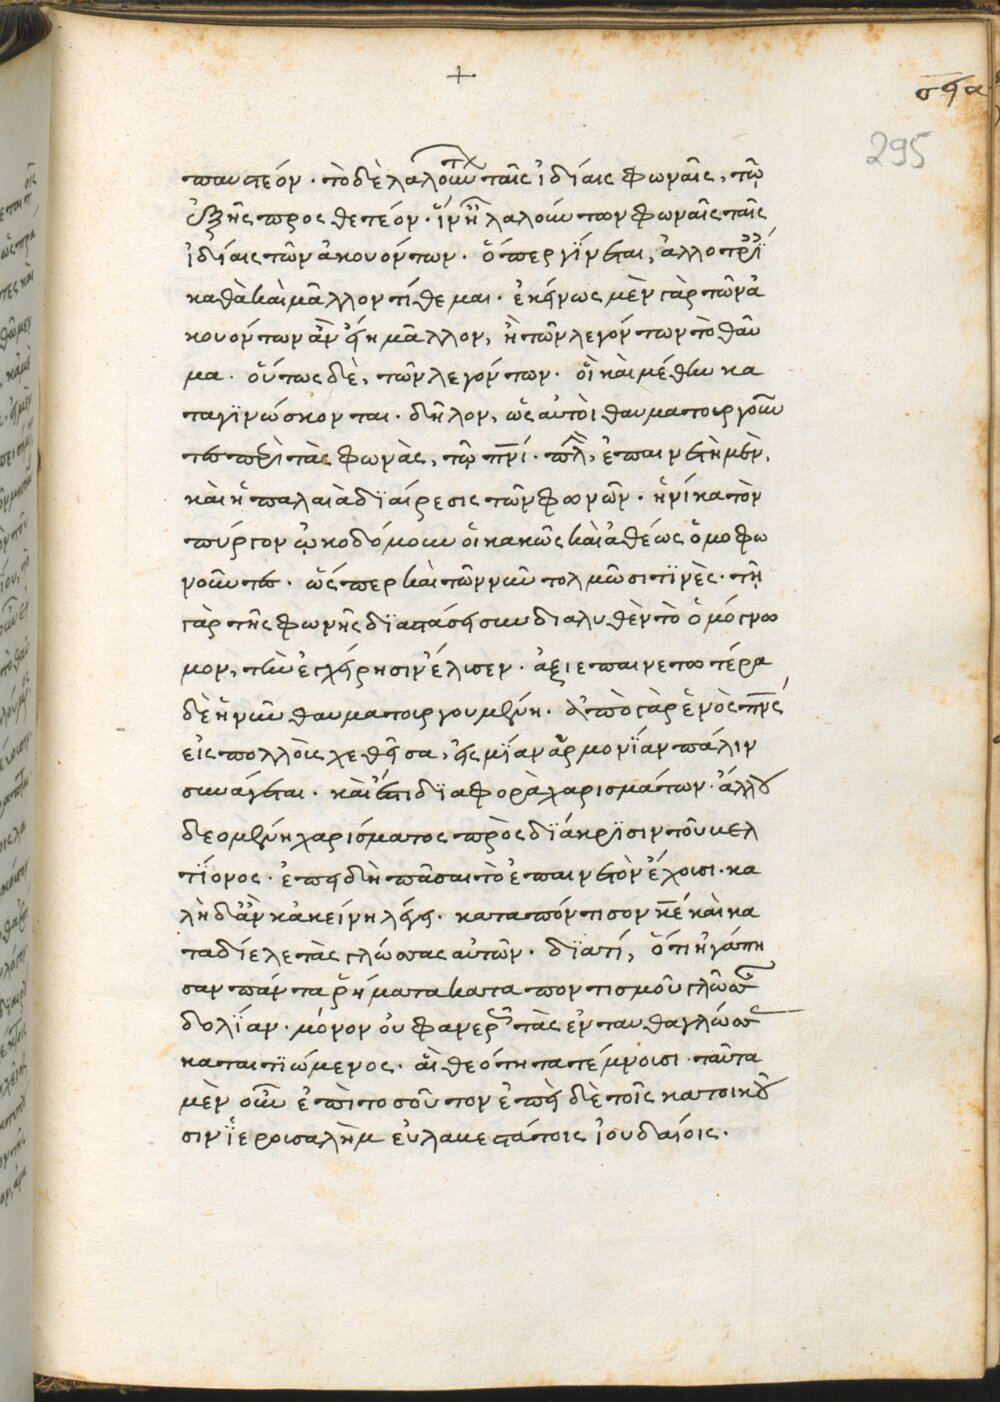 +
σϟα
295
παυστέον· τὸ δὲ λαλούντων ταῖς ἰδίαις φωναῖς, τῷ
ἑξῆς προσθετέον· ἵν' ᾖ λαλούντων φωναῖς ταῖς
ἰδίαις τῶν ἀκουόντων· ὅπερ γίνεται, ἀλλοτρί
καθὰ καὶ μᾶλλον τίθεμαι· ἐκείνως μὲν γὰρ τῶν ἀ
κουόντων ἂν εἴη μᾶλλον, ἢ τῶν λεγόντων τὸ θαῦ
μα· οὕτως δὲ, τῶν λεγόντων· οἳ καὶ μέθην κα
ταγϊνώσκονται· δῆλον, ὡς αὐτοὶ θαυματουργοῦν
τες περὶ τὰς φωνὰς, τῷ πνι· πλὴν, ἐπαινετὴ μὲν,
καὶ ἡ παλαιὰ δϊαίρεσις τῶν φωνῶν· ἡνίκα τὸν
πύργον ᾠκοδόμουν οἱ κακῶς καὶ ἀθέως ὁμοφω
νοῦντες· ὥσπερ καὶ τῶν νῦν τολμῶσι τϊνὲς· τῇ
γὰρ τῆς φωνῆς δϊαστάσει συνδιαλυθὲν τὸ ὁμόγνω
μον, τὴν ἐγχείρησιν ἔλυσεν· ἀξιεπαινετωτέρα
δὲ ἡ νῦν θαυματουργουμένη· ἀπὸ γὰρ ἑνὸς πνς
εἰς πολλοὺς χεθεῖσα, εἰς μϊαν ἁρμονϊαν πάλιν
συνάγεται· καὶ ἔστι δϊαφορὰ χαρισμάτων· ἄλλου
δεομένη χαρίσματος πρὸς δϊάκρϊσιν τοῦ βελ
τϊονος· ἐπειδὴ πᾶσαι τὸ ἐπαινετὸν ἔχουσι· κα
λὴ δ' ἂν κἀκείνη λέγοι· καταπόντισον κε καὶ κα
ταδίελε τὰς γλώσσας αὐτῶν· δϊατί, ὅτι ἠγάπη
σαν πάντα ῥήματα καταποντισμοῦ γλῶσσαν
δολϊαν· μόνον οὐ φανερῶς τὰς ἐνταυθα γλώσσας
καταιτϊώμενος· αἳ θεότητα τέμνουσι· ταῦτα
μὲν οὖν ἐπὶ τοσοῦτον ἐπεὶ δὲ τοῖς κατοικοῦ
σιν ϊερουσαλὴμ εὐλαβεστάτοις ἰουδαίοις·